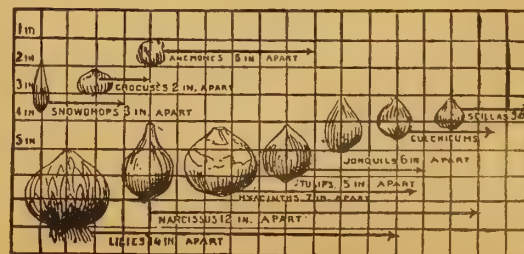 1 IN
2 IN
ANEMONES 6 IN APART
3 IN
CROCUSES 2 IN. APART
4 IN
SNOWDROPS 3 IN. APART
SCILLAS
COLCHICUMS
5 IN
JONQUILS 6 IN APART
TULIPS, 5 IN APART
HYACINTHS, 7 IN. APART
NARCISSUS 12 IN. APART
LILIES 14 IN. APART